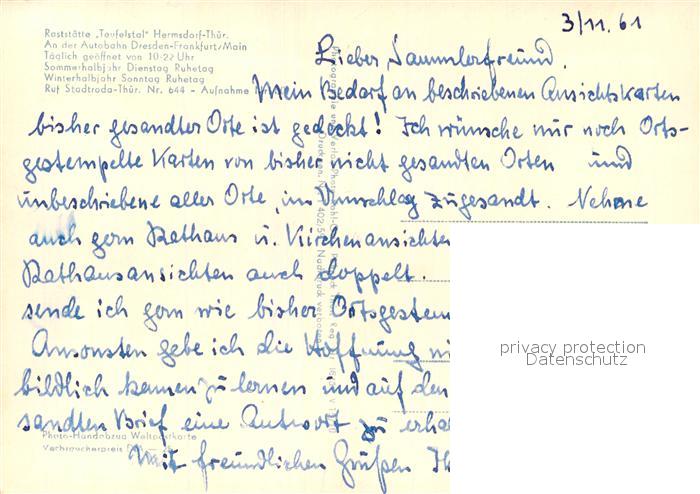 3/11. 61
Raststätte „Teufelstal" Hermsdorf-Thür.
An der Autobahn Dresden-Frankfurt/Main
Täglich geöffnet von 10-22 Uhr
Sommerhalbjahr Dienstag Ruhetag
Winterhalbjahr Sonntag Ruhetag
Ruf Stadtroda-Thür. Nr. 644 - Aufnahme
Lieber Sammlerfreund.
Mein Bedarf an beschriebenen Ansichtskarten
bisher gesandter Orte ist gedeckt! Ich wünsche nur noch Orts-
gestempelte Karten von bisher nicht gesandten Orten und
unbeschriebene aller Orte, im Umschlag zugesandt. Nehme
auch gern Rathaus u. Kirchenansichten
Rathausansichten auch doppelt.
sende ich gern wie bisher Ortsgestem
Ansonsten gebe ich die Hoffnung ni
bildlich kennen zu lernen und auf den
sandten Brief eine Antwort zu erha
Mit freundlichen Grüßen Ih
Photo-Handabzug Weltpostkarte
Verbraucherpreis
privacy protection
Datenschutz